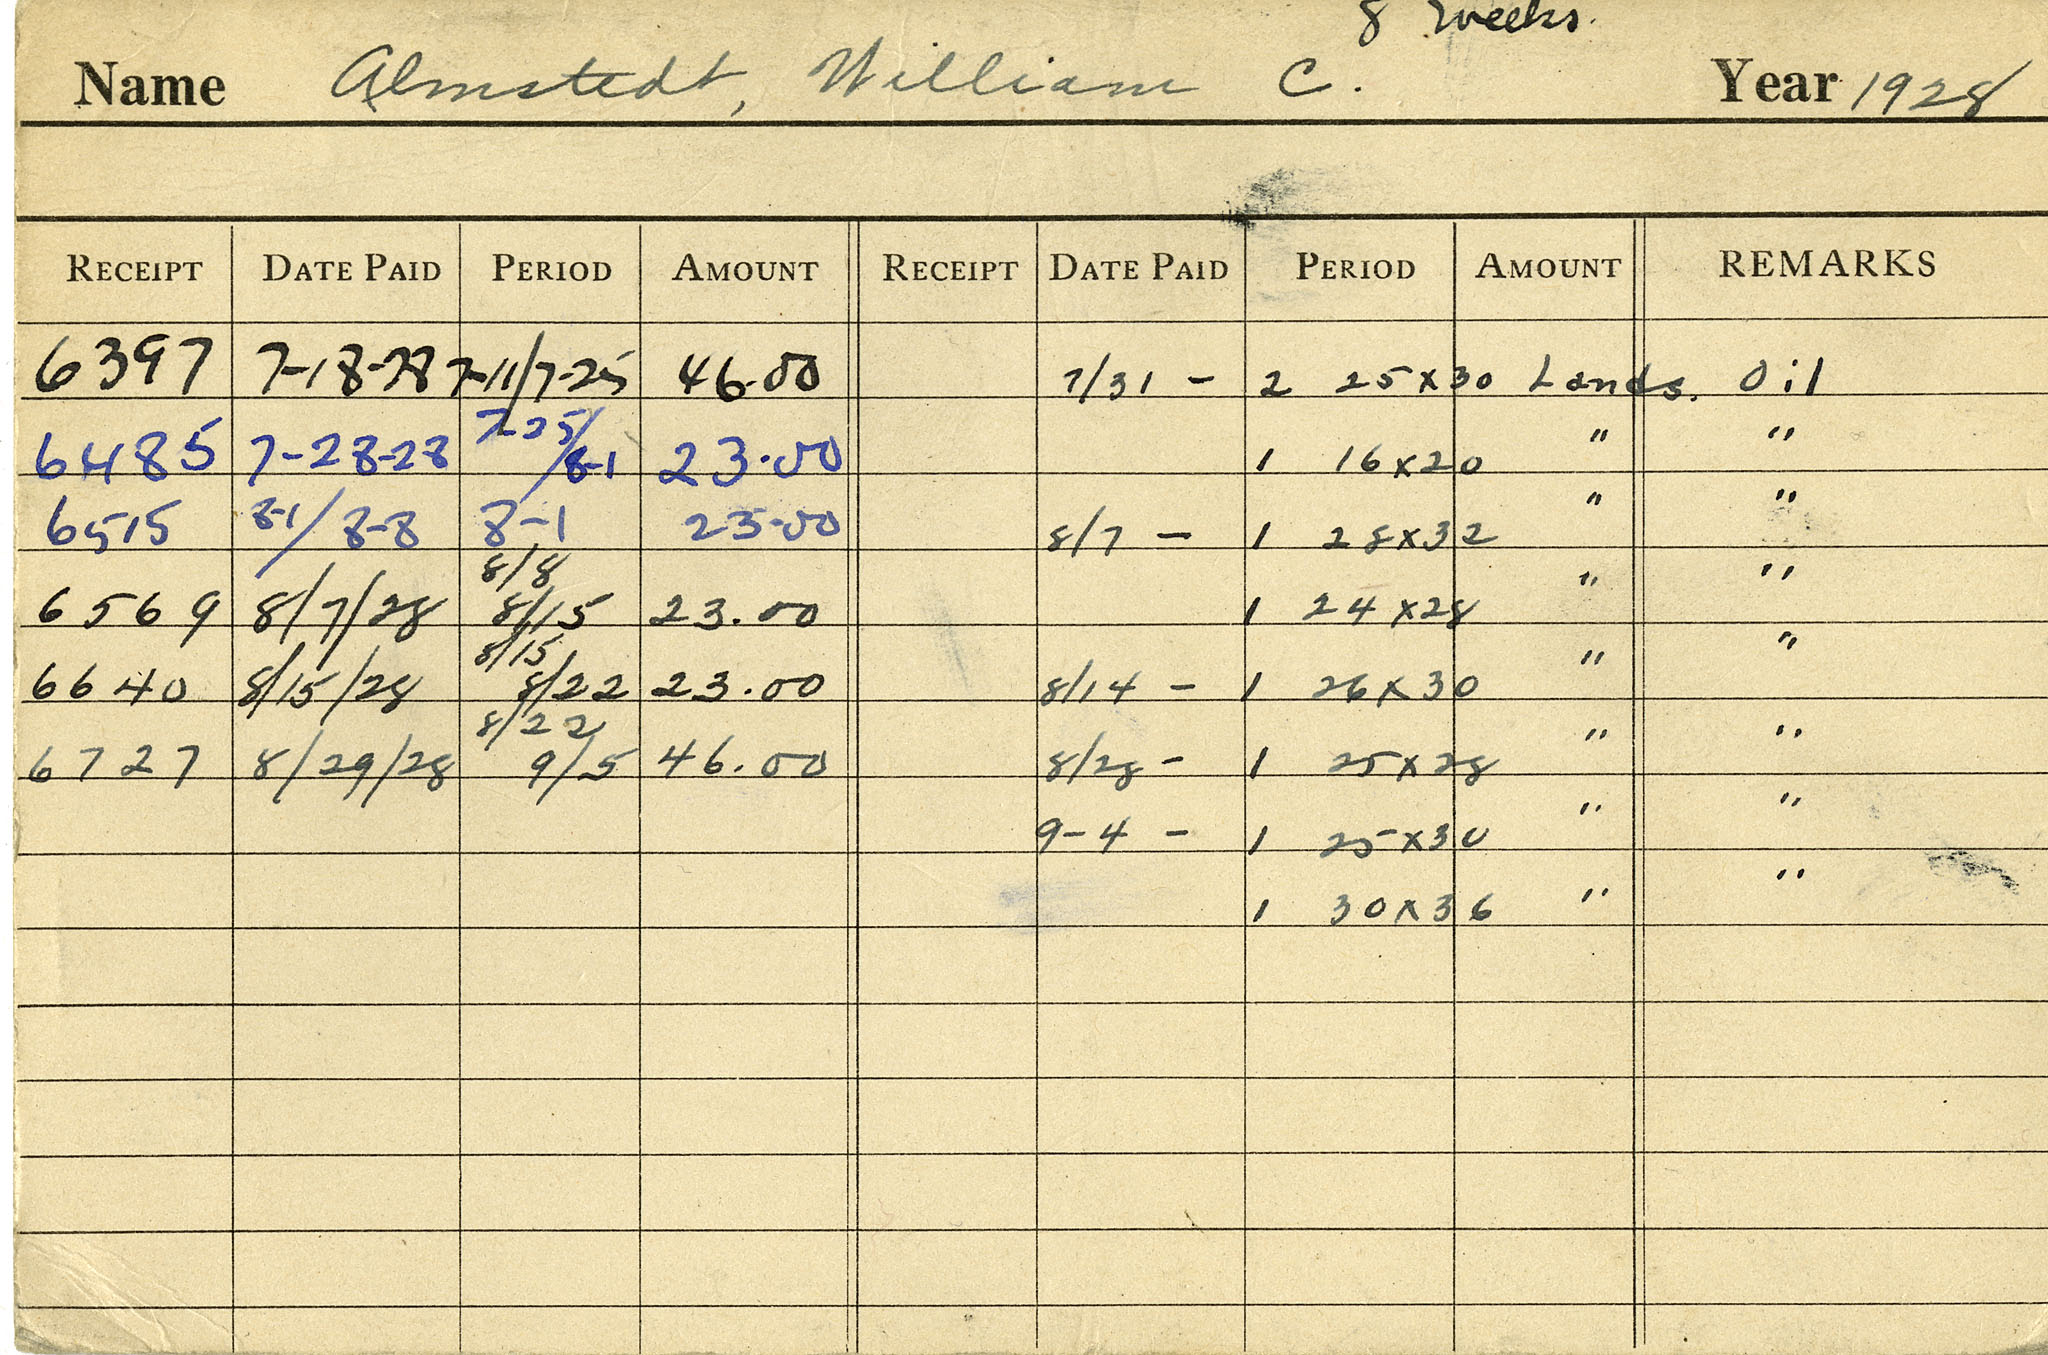 8 weeks.
Name Almstedt, William C. Year 1928
RECEIPT DATE PAID PERIOD AMOUNT RECEIPT DATE PAID PERIOD AMOUNT REMARKS
6397 7-18-28 7-11/7-25 46.00 7/31 - 2 25x30 Lands. Oil
6485 7-28-28 7-25/8-1 23.00 1 16x20 " "
6515 8-1/8-8 8-1 23.00 8/7 - 1 28x32 " "
8/8
6569 8/7/28 8/15 23.00 1 24x28 " "
8/15
6640 8/15/28 8/22 23.00 8/14 - 1 26x30 " "
8/22
6727 8/29/28 9/5 46.00 8/28 - 1 25x28 " "
9-4 - 1 25x30 " "
1 30x36 " "